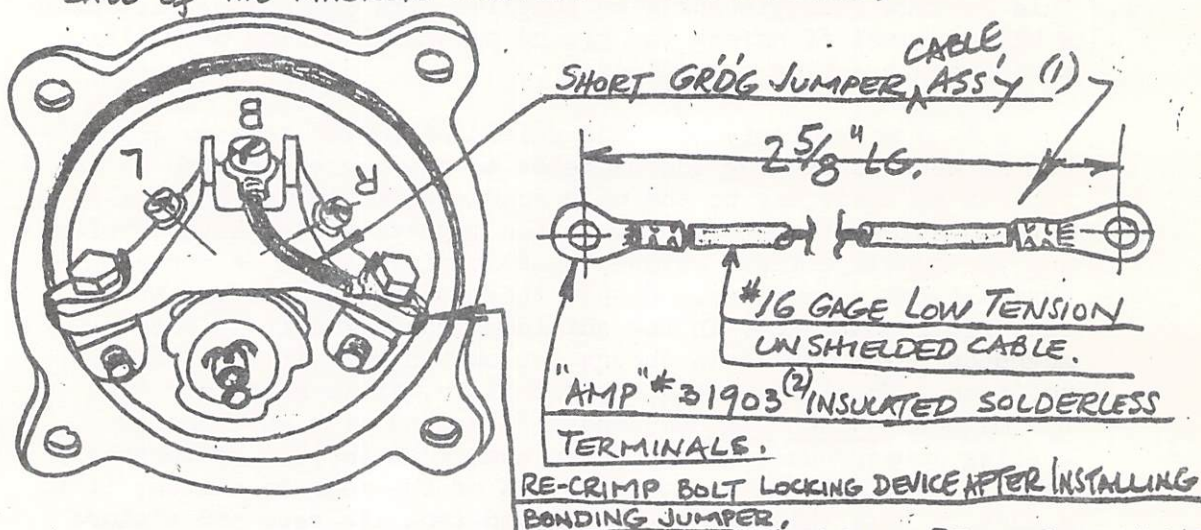 OF THE
B
L
R
SHORT GR'D'G JUMPER CABLE ASS'Y (1)
2 5/8" LG.
#16 GAGE LOW TENSION
UNSHIELDED CABLE.
"AMP" #31903 (2) INSULATED SOLDERLESS
TERMINALS.
RE-CRIMP BOLT LOCKING DEVICE AFTER INSTALLING
BONDING JUMPER.